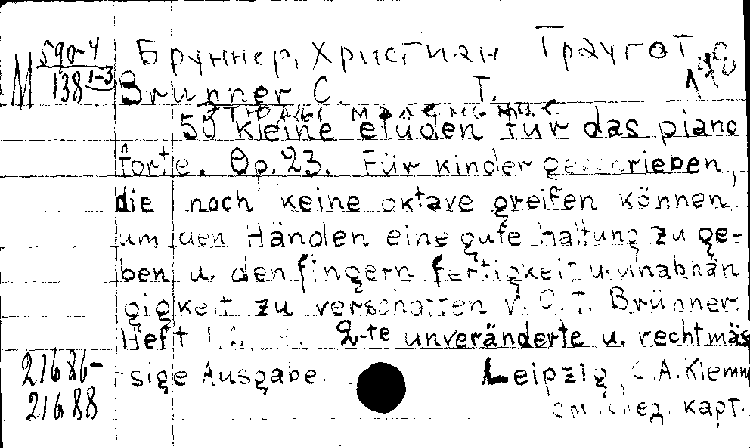 М 590-4 Бруннер, Христиан Траугот
138 1-3 Brunner C. T.
50 kleine etüden für das piano
forte. Op. 23. Für kinder geschrieben,
die noch keine oktave greifen können
um den Händen eine gute haltung zu ge-
ben u. den fingern fertigkeit u. unabhän
gigkeit zu verschaffen v. C. T. Brünner.
Heft 2-te unveränderte u. rechtmäs
21686- sige Ausgabe. Leipzig, C. A. Klemm
21688 см. след. карт.